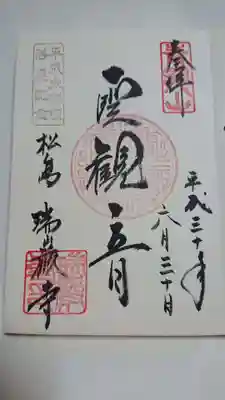 奉拝
平成三十年
六月三十日
聖観音
松島 瑞巌寺